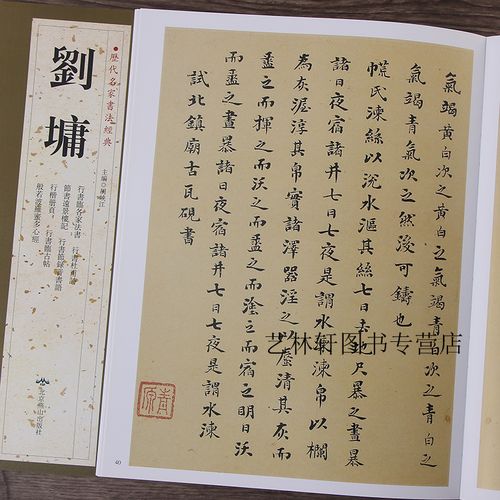 ●歷代名家書法經典
劉墉
主編/胡
行書臨各家法書 行書杜甫詩
節書遠景樓記
行楷册頁 行書臨古帖
般若波羅蜜多心經
北京燕山出版社
氣竭黄白次之黄白之氣竭青白次之青白之
氣竭青氣次之然後可鑄也
㡆氏湅絲以涗水漚其絲七日去地尺暴之晝暴
諸日夜宿諸井七日七夜是謂水湅湅帛以欄
為灰渥淳其帛實諸澤器淫之以蜃清其灰而
盝之而揮之而沃之而盝之而塗之而宿之明日沃
而盝之晝暴諸日夜宿諸井七日七夜是謂水湅
試北鎮廟古瓦硯書
40
艺林轩图书专营店